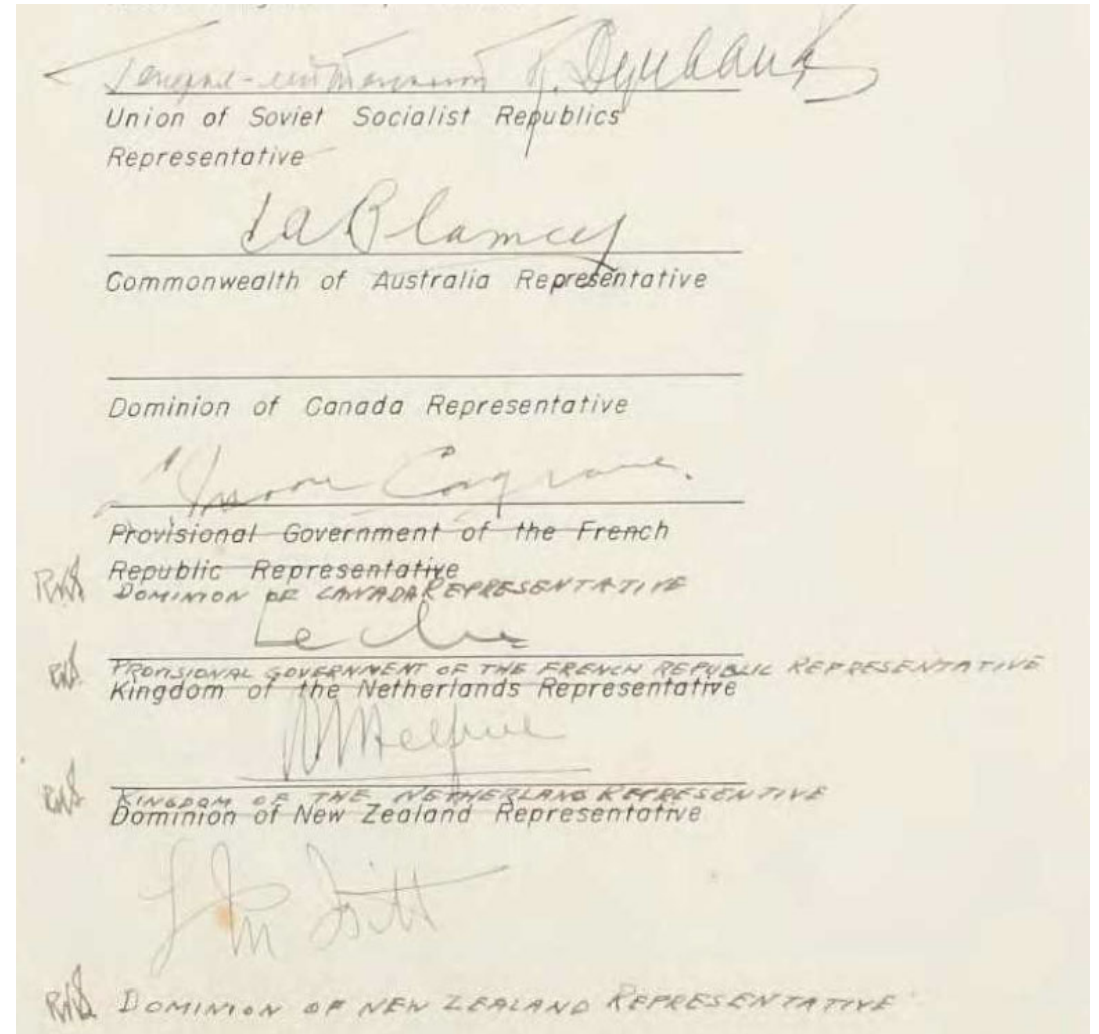 Генерал-лейтенант К. Деревянко
Union of Soviet Socialist Republics
Representative
T a Blamey
Commonwealth of Australia Representative
Dominion of Canada Representative
Moore Cosgrave.
Provisional Government of the French
Republic Representative
RKS DOMINION OF CANADA REPRESENTATIVE
Leclerc
RKS PROVISIONAL GOVERNMENT OF THE FRENCH REPUBLIC REPRESENTATIVE
Kingdom of the Netherlands Representative
Helfrich
RKS KINGDOM OF THE NETHERLAND REPRESENTIVE
Dominion of New Zealand Representative
L M Isitt
RKS DOMINION OF NEW ZEALAND REPRESENTATIVE